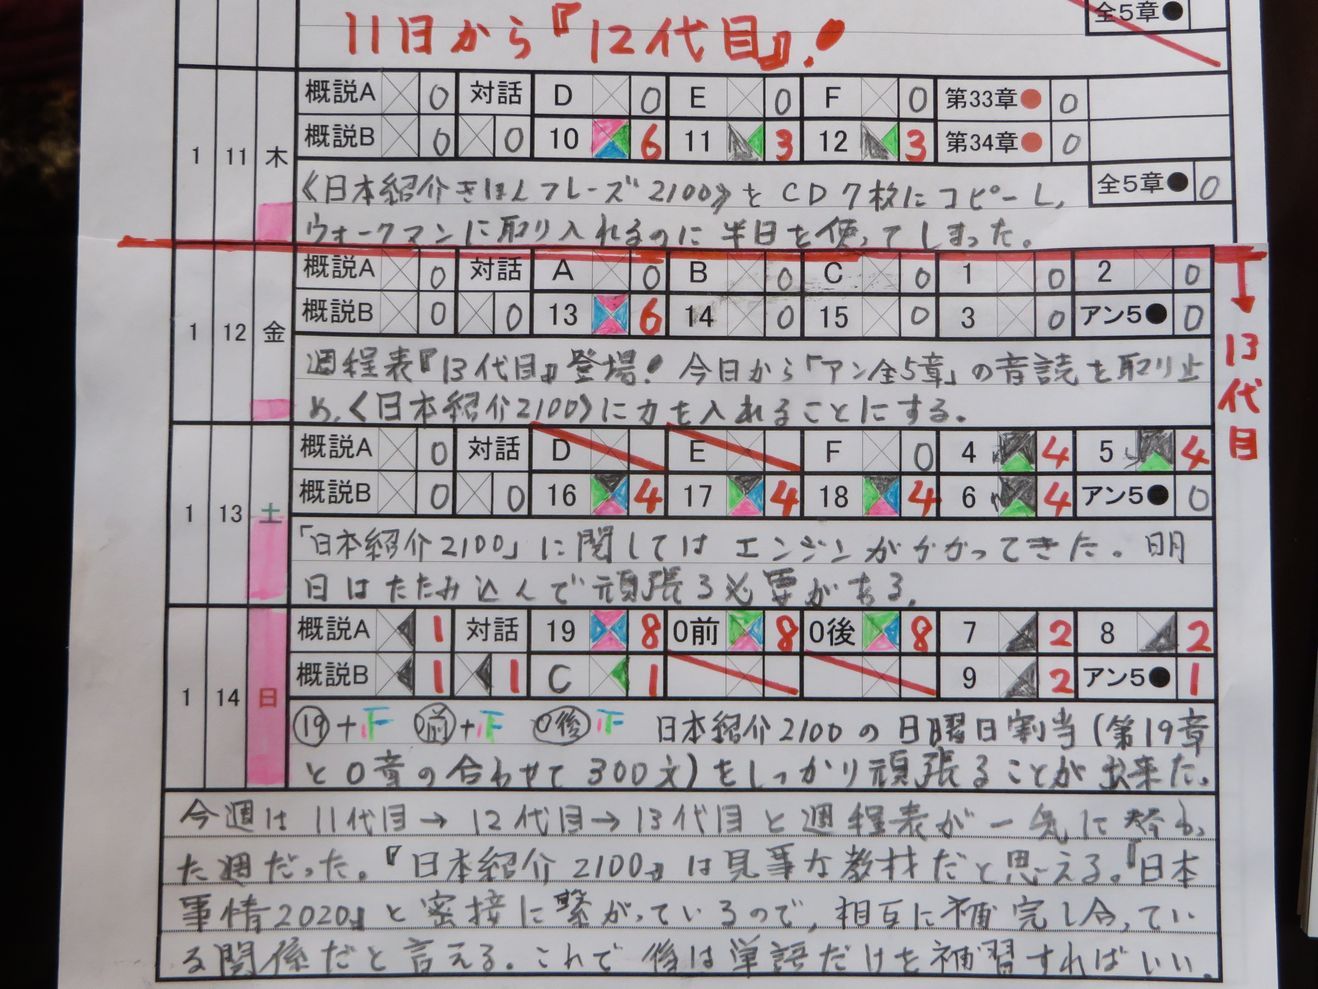 全5章●
11日から『12代目』!
概説A 0 対話 D 0 E 0 F 0 第33章● 0
1 11 木
概説B 0 0 10 6 11 3 12 3 第34章● 0
《日本紹介きほんフレーズ2100》を CD 7枚にコピーし、 全5章● 0
ウォークマンに取り入れるのに半日を使ってしまった。
概説A 0 対話 A 0 B 0 C 0 1 0 2 0
1 12 金
概説B 0 0 13 6 14 0 15 0 3 0 アン5● 0
13代目
週程表『13代目』登場! 今日から「アン全5章」の音読を取り止
め、《日本紹介2100》に力を入れることにする。
概説A 0 対話 D E F 0 4 4 5 4
1 13 土
概説B 0 0 16 4 17 4 18 4 6 4 アン5● 0
「日本紹介2100」に関してはエンジンがかかってきた。明
日はたたみ込んで頑張る必要がある。
概説A 1 対話 19 8 0前 8 0後 8 7 2 8 2
1 14 日
概説B 1 1 C 1 9 2 アン5● 1
⑲+F 前+F 0後 F 日本紹介2100の日曜日割当(第19章
と0章の合わせて300文)をしっかり頑張ることが出来た。
今週は11代目→12代目→13代目と週程表が一気に替わっ
た週だった。『日本紹介2100』は見事な教材だと思える。『日本
事情2020』と密接に繋がっているので、相互に補完し合ってい
る関係だと言える。これで後は単語だけを補習すればいい。